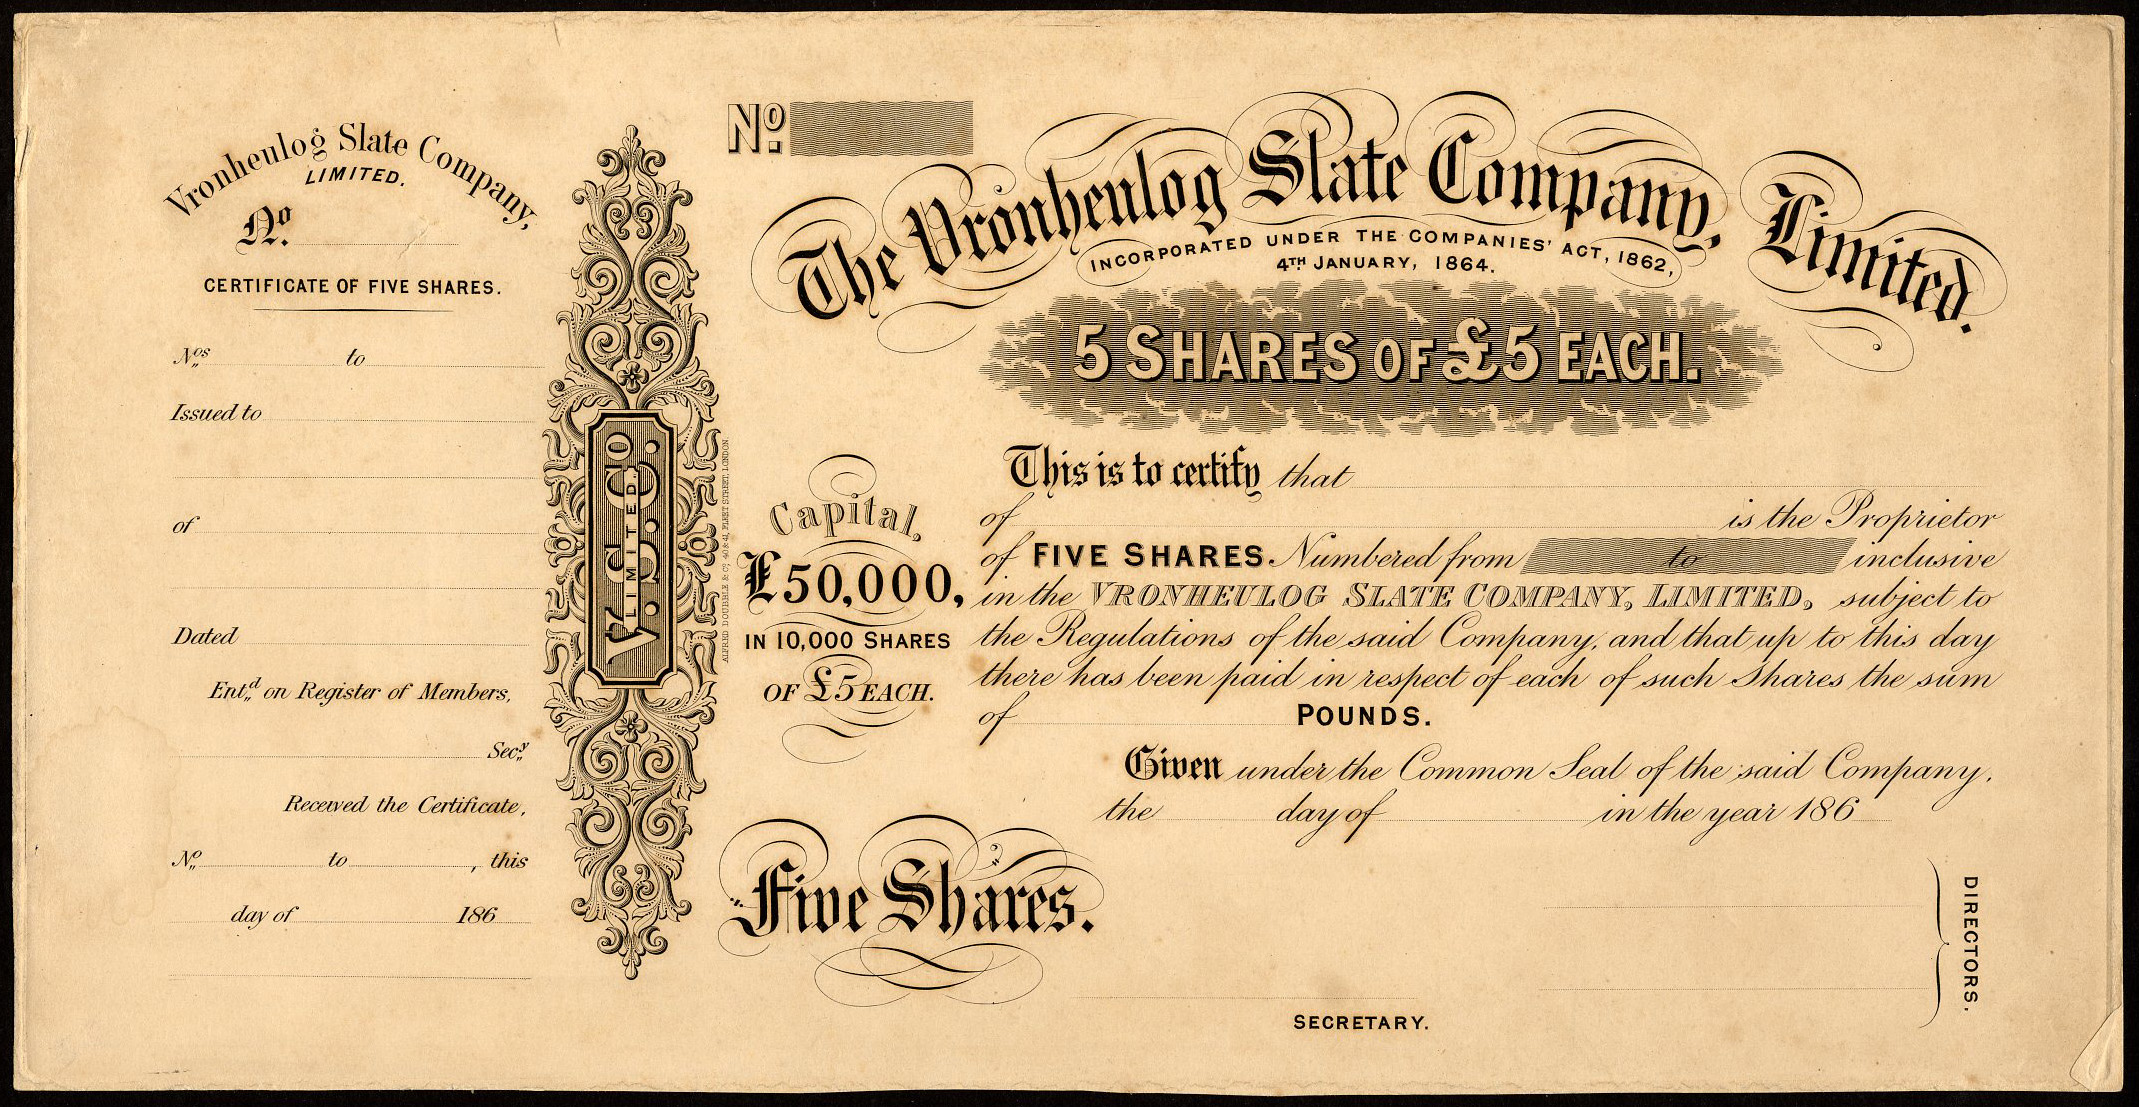 Vronheulog Slate Company,
LIMITED.
No.
CERTIFICATE OF FIVE SHARES.
Nos to
Issued to
of
Dated
Ent,,d on Register of Members,
Sec,,y
Received the Certificate,
No to , this
day of 186
V. S. Co.
LIMITED.
ALFRED DOUBBLE & Co, 40 & 42, FLEET STREET, LONDON.
No.
The Vronheulog Slate Company, Limited.
INCORPORATED UNDER THE COMPANIES' ACT, 1862,
4TH JANUARY, 1864.
5 SHARES OF £5 EACH.
Capital,
£50,000,
IN 10,000 SHARES
OF £5 EACH.
This is to certify that
of is the Proprietor
of FIVE SHARES. Numbered from to inclusive
in the VRONHEULOG SLATE COMPANY, LIMITED, subject to
the Regulations of the said Company, and that up to this day
there has been paid in respect of each of such Shares the sum
of POUNDS.
Given under the Common Seal of the said Company,
the day of in the year 186
Five Shares.
DIRECTORS.
SECRETARY.